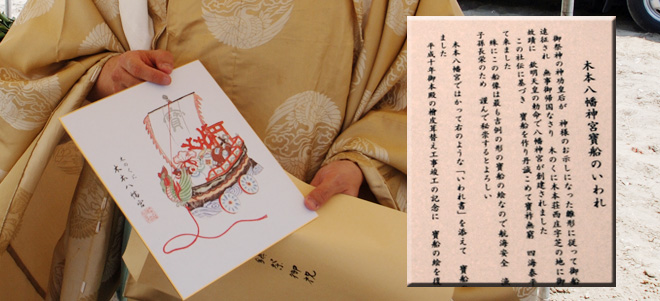 木本八幡神宮寶船のいわれ
御祭神の神功皇后が 神様のお示しになった雛形に従って御船
遠征され 無事御帰国なさり 木のくに木本荘西庄字芝の地に御
故蹟に 欽明天皇の勅命で八幡神宮が創建されました
この社伝に基づき 寶船を作り丹誠こめて寶祚無窮 四海泰
て来ました
殊にこの船像は最も吉例の形の寶船の絵なので航海安全 漁
子孫長栄のため 謹んで秘蔵するとよろしい
木本八幡宮ではかって右のような「いわれ書」を添えて 寶船
ました
平成十年御本殿の檜皮葺替え工事竣工の記念に 寶船の絵を復
木のくに
木本八幡宮